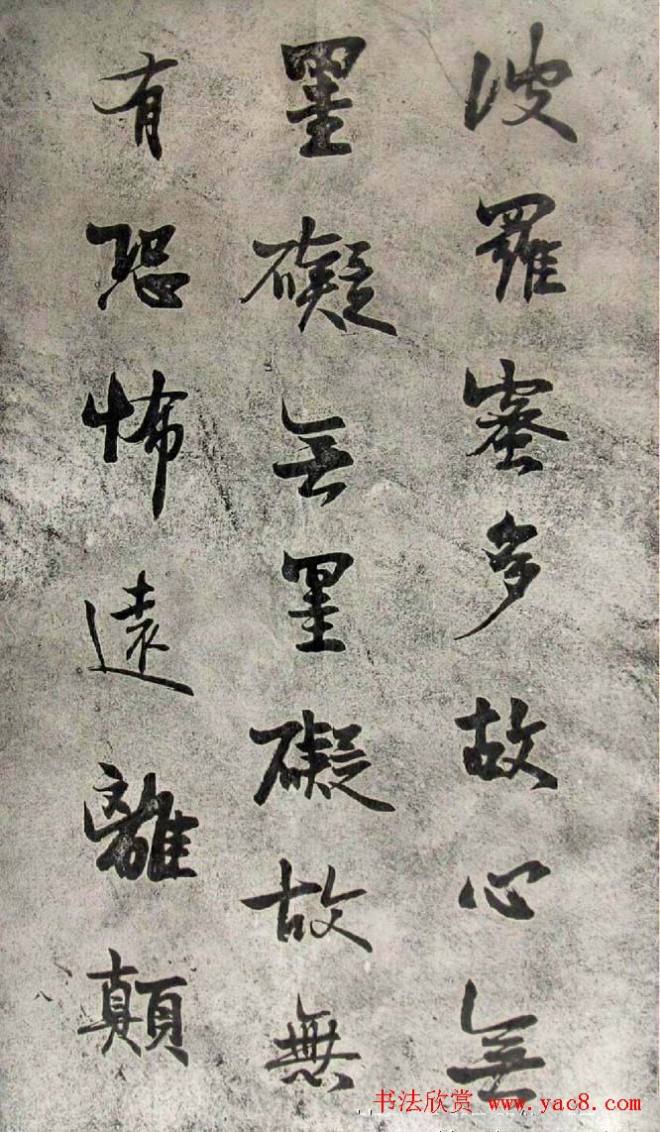 波羅蜜多故心無
罣礙無罣礙故無
有恐怖遠離顛
书法欣赏 www.yac8.com